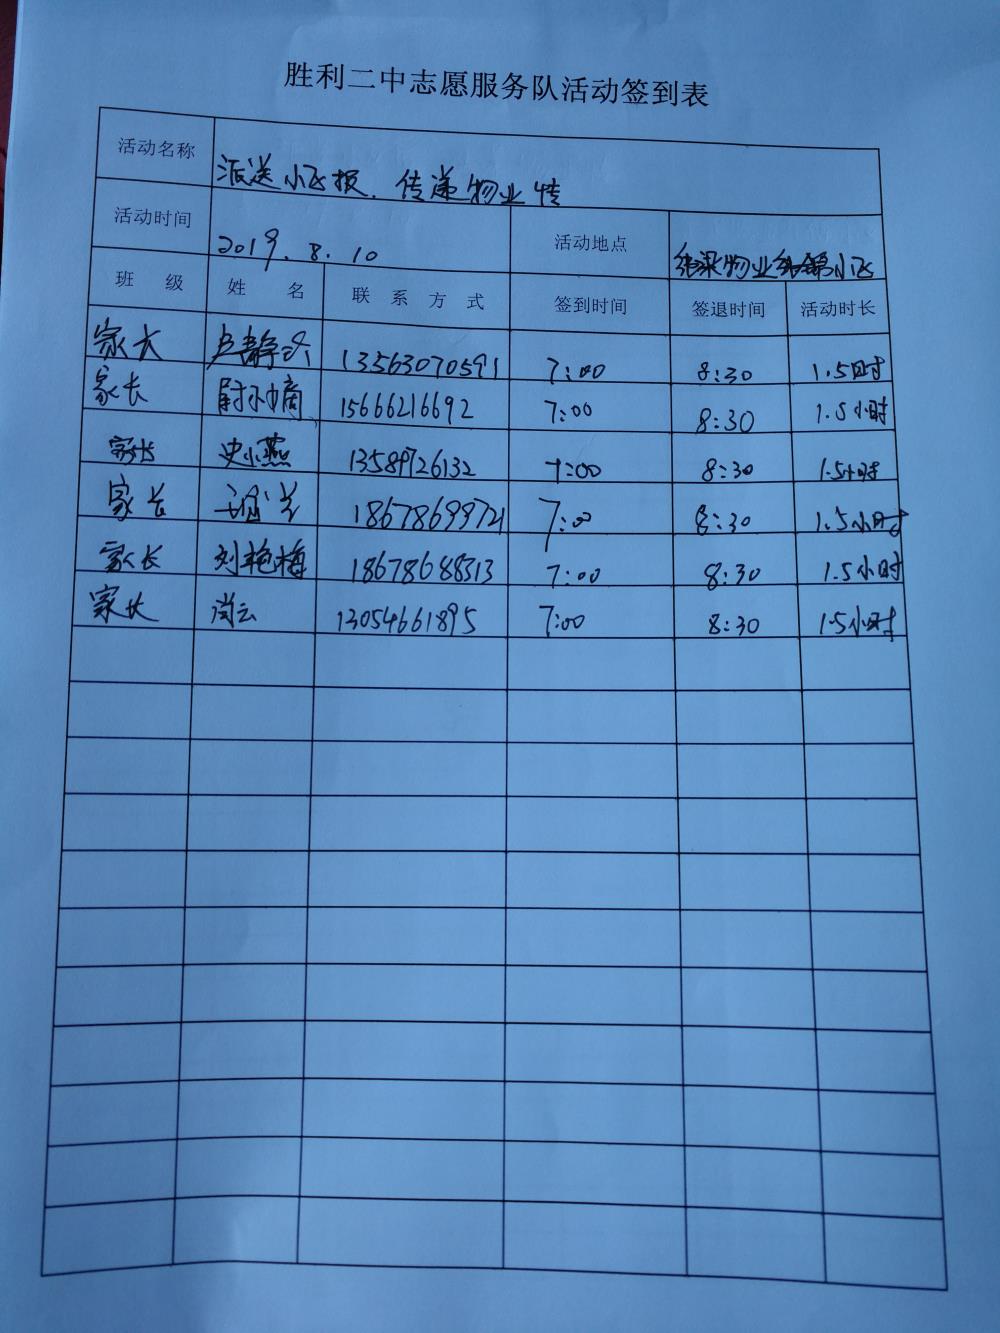 胜利二中志愿服务队活动签到表
活动名称 派送小飞报、传递物业情
活动时间 2019.8.10 活动地点 物业
班级 姓名 联系方式 签到时间 签退时间 活动时长
家长 卢静 13563070591 7:00 8:30 1.5小时
家长 15666216692 7:00 8:30 1.5小时
家长 史小燕 13589726132 7:00 8:30 1.5小时
家长 18678699721 7:00 8:30 1.5小时
家长 刘艳梅 18678688313 7:00 8:30 1.5小时
家长 尚云 13054661895 7:00 8:30 1.5小时